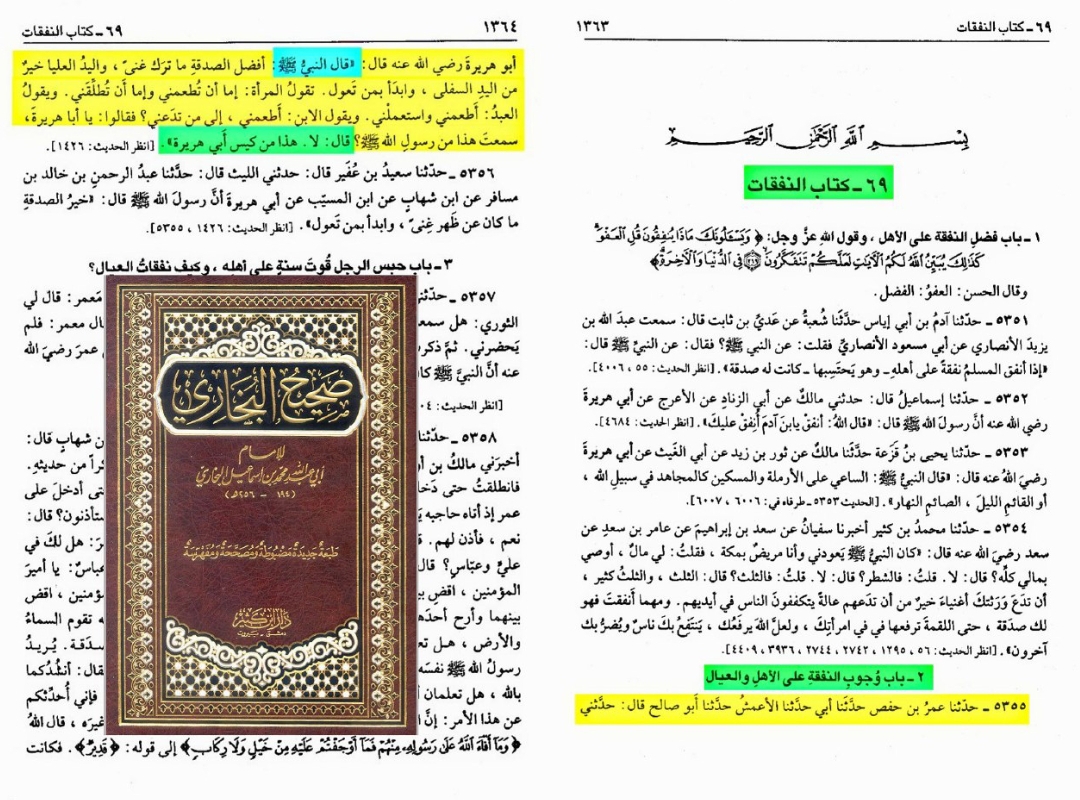 ٦٩ـ كتاب النفقات
١٣٦٣
بِسْمِ اللَّهِ الرَّحْمَٰنِ الرَّحِيمِ
٦٩ ـ كتاب النفقات
١ ـ باب فضلِ النفقة على الأهل ، وقول اللهِ عزَّ وجل: ﴿ وَيَسْـَٔلُونَكَ مَاذَا يُنفِقُونَ قُلِ الْعَفْوَ
كَذَٰلِكَ يُبَيِّنُ اللَّهُ لَكُمُ الْآيَاتِ لَعَلَّكُمْ تَتَفَكَّرُونَ ﴿٢١٩﴾ فِي الدُّنْيَا وَالْآخِرَةِ ﴾
وقال الحسن: العفوُ: الفضل.
٥٣٥١ ـ حدّثنا آدمُ بن أبي إياس حدَّثَنا شعبةُ عن عَديِّ بن ثابت قال: سمعت عبدَ الله بن
يزيدَ الأنصاري عن أبي مسعود الأنصاريِّ فقلت: عن النبيِّ ﷺ؟ فقال: عن النبيِّ ﷺ قال:
«إذا أنفق المسلمُ نفقةً على أهلهِ ـ وهو يَحتَسِبها ـ كانت له صدقة». [انظر الحديث: ٥٥ ، ٤٠٠٦].
٥٣٥٢ ـ حدّثنا إسماعيلُ قال: حدثني مالكٌ عن أبي الزناد عن الأعرج عن أبي هريرةَ
رضي الله عنه أنَّ رسولَ الله ﷺ قال: «قال اللهُ: أنفقْ يابنَ آدمَ أُنفِقْ عليكَ». [انظر الحديث: ٤٦٨٤].
٥٣٥٣ ـ حدّثنا يحيى بن قَزَعة حدَّثَنا مالكٌ عن ثَور بن زيد عن أبي الغَيث عن أبي هريرةَ
رضيَ اللهُ عنه قال: «قال النبيُّ ﷺ: الساعي على الأرملةِ والمسكين كالمجاهد في سبيل الله ،
أو القائمِ الليلَ ، الصائمِ النهار». [الحديث ٥٣٥٣ ـ طرفاه في: ٦٠٠٦ ، ٦٠٠٧].
٥٣٥٤ ـ حدّثنا محمدُ بن كثير أخبرنا سفيانُ عن سعد بن إبراهيمَ عن عامر بن سعدٍ عن
سعد رضيَ الله عنه قال: «كان النبيُّ ﷺ يَعودني وأنا مريضٌ بمكة ، فقلتُ: لي مالٌ ، أوصي
بمالي كلِّه؟ قال: لا. قلت: فالشطر؟ قال: لا. قلتُ: فالثلث؟ قال: الثلث ، والثلثُ كثير ،
أن تدَعَ وَرَثتكَ أغنياءَ خيرٌ من أن تدَعَهم عالةً يتكففونَ الناس في أيديهم. ومهما أنفقتَ فهو
لك صدَقة ، حتى اللقمةَ ترفعها في في امرأتِكَ ، ولعلَّ اللهَ يرفعُك ، يَنتفِعُ بكَ ناسٌ ويُضرُّ بك
آخرون». [انظر الحديث: ٥٦ ، ١٢٩٥ ، ٢٧٤٢ ، ٢٧٤٤ ، ٣٩٣٦ ، ٤٤٠٩].
٢ ـ باب وُجوبِ النفقةِ على الأهلِ والعيال
٥٣٥٥ ـ حدّثنا عمرُ بن حفص حدَّثَنا أبي حدَّثَنا الأعمشُ حدَّثَنا أبو صالح قال: حدَّثَني
١٣٦٤
٦٩ـ كتاب النفقات
أبو هريرةَ رضي الله عنه قال: «قال النبيُّ ﷺ: أفضل الصدقةِ ما ترَك غنىً ، واليدُ العليا خيرٌ
من اليدِ السفلى ، وابدَأ بمن تَعول. تقولُ المرأة: إما أن تُطعمني وإما أن تُطلِّقَني. ويقولُ
العبدُ: أطعمني واستعملْني. ويقول الابن: أطعمني ، إلى من تدَعني؟ فقالوا: يا أبا هريرة،
سمعتَ هذا من رسولِ الله ﷺ؟ قال: لا. هذا من كيس أبي هريرة». [انظر الحديث: ١٤٢٦].
٥٣٥٦ ـ حدّثنا سعيدُ بن عُفَير قال: حدثني الليث قال: حدَّثَنا عبدُ الرحمنِ بن خالد بن
مسافر عن ابن شهابٍ عن ابن المسيّب عن أبي هريرةَ أنَّ رسولَ الله ﷺ قال: «خيرُ الصدقةِ
ما كان عن ظَهر غِنىً ، وابدأ بمن تَعول». [انظر الحديث: ١٤٢٦ ، ٥٣٥٥].
٣ ـ باب حبس الرجل قُوتَ سنةٍ على أهله ، وكيف نفقاتُ العيال؟
٥٣٥٧ ـ حدّثنا
مَعمر: قال لي
الثوري: هل سمعتَ
قال معمر: فلم
يَحضرني. ثمَّ ذكرتُ
عمرَ رضيَ الله
عنه أنَّ النبيَّ ﷺ كان
[انظر الحديث:
٥٣٥٨ ـ حدّثنا
بن شهابٍ قال:
أخبرَني مالكُ بن
ذكراً من حديثِه.
فانطلقتُ حتى دَخلت
حتى أدخلَ على
عمر إذ أتاه حاجبه
يستأذنون؟ قال:
نعم ، فأذن لهم.
هل لكَ في
عليٍّ وعبّاسٍ؟ قال
عباسٌ: يا أميرَ
المؤمنين ، اقض
المؤمنين ، اقض
بينهما وأرح أحدَهما
تقوم السماءُ
والأرض ، هل
صدَقة. يُريدُ
رسولُ اللهِ ﷺ نفسَه
فقال: أنشُدُكما
بالله ، هل تعلمان
فإني أُحدِّثكم
عن هذا الأمر: إنَّ
غيرَه ، قال اللهُ
﴿ وَمَا أَفَاءَ اللَّهُ عَلَىٰ رَسُولِهِ مِنْهُمْ فَمَا أَوْجَفْتُمْ عَلَيْهِ مِنْ خَيْلٍ وَلَا رِكَابٍ ﴾ إلى قوله: ﴿ قَدِيرٌ ﴾. فكانت
صَحِيحُ البُخَارِي
للإمام
أبي عبد الله محمد بن إسماعيل البخاري
(١٩٤ - ٢٥٦هـ)
طبعة جديدة مضبوطة ومصححة ومفهرسة
دار ابن كثير
دمشق - بيروت